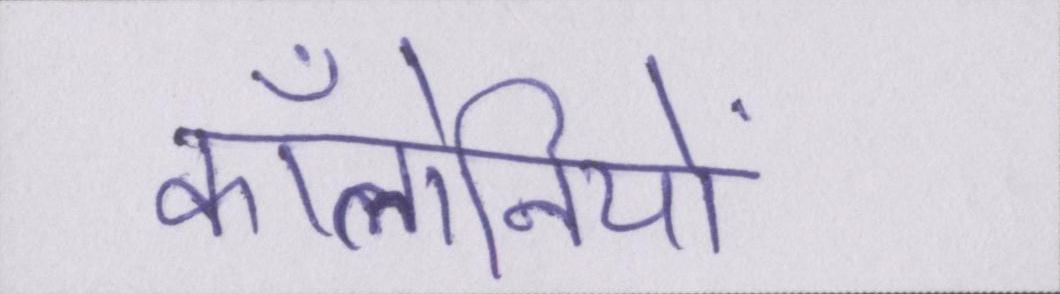 काँलोनियों